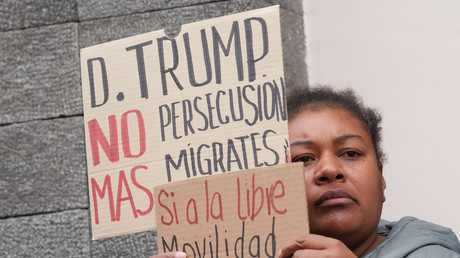 D. TRUMP
NO PERSECUSIÓN
MAS MIGRATES
Si a la libre
Movilidad